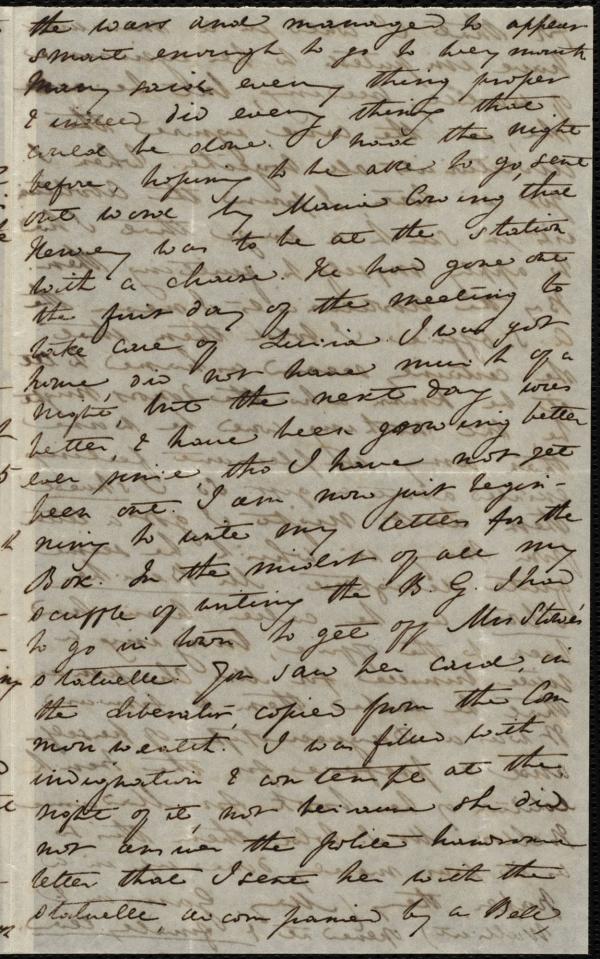 the wars and managed to appear
smart enough to go to Weymouth
Mary said every thing proper
& indeed did every thing that
could be done. I had the night
before, hoping to be able to go, sent
out word by Maria Cowing that
Hervey was to be at the station
with a chaise. He had gone out
the first day of the meeting to
take care of Louisa. I was got
home, did not have much of a
night, but the next day was
better, & have been growing better
ever since, tho I have not yet
been out. I am now just begin-
ning to write my letters for the
Box. In the midst of all my
scuffle of writing the B. G. I had
to go in town to get off Mrs Stowe's
statuette. You saw her card, in
the Liberator, copied from the Com
monwealth. I was filled with
indignation & contempt at the
sight of it, not because she did
not answer the polite handsome
letter that I sent her with the
statuette, accompanied by a Bell,